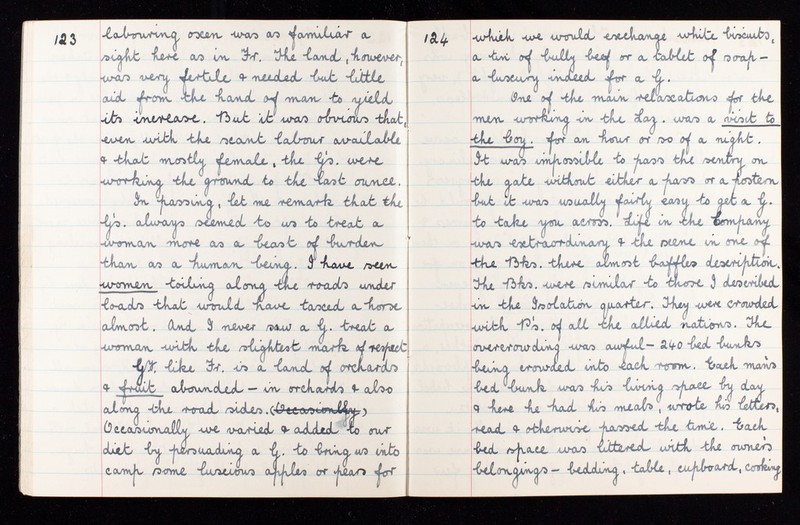 123
labouring oxen was as familiar a
sight here as in Fr. The land, however,
was very fertile & needed but little
aid from the hand of man to yield
its increase. But it was obvious that,
even with the scant labour available
& that mostly female, the G's. were
working the ground to the last ounce.
In passing, let me remark that the
G's. always seemed to us to treat a
woman more as a beast of burden
than as a human being. I have seen
women toiling along the roads under
loads that would have taxed a horse
almost. And I never saw a G. treat a
woman with the slightest mark of respect.
GY. like Fr. is a land of orchards
& fruit abounded – in orchards & also
along the road sides. (Occasionally,)
Occasionally we varied & added to our
diet by persuading a G. to bring us into
camp some luscious apples or pears for
124
which we would exchange white biscuits,
a tin of bully beef or a tablet of soap –
a luxury indeed for a G.
One of the main relaxations for the
men working in the Laz. was a visit to
the Coy. for an hour or so of a night.
It was impossible to pass the sentry on
the gate without either a pass or a postern
but it was usually fairly easy to get a G.
to take you across. Life in the Company
was extraordinary & the scene in one of
the Bks. there almost baffles description.
The Bks. were similar to those I described
in the Isolation quarter. They were crowded
with P's. of all the allied nations. The
overcrowding was awful – 240 bed bunks
being crowded into each room. Each man's
bed bunk was his living space by day
& here he had his meals, wrote his letters,
read & otherwise passed the time. Each
bed space was littered with the owner's
belongings – bedding, table, cupboard, cooking